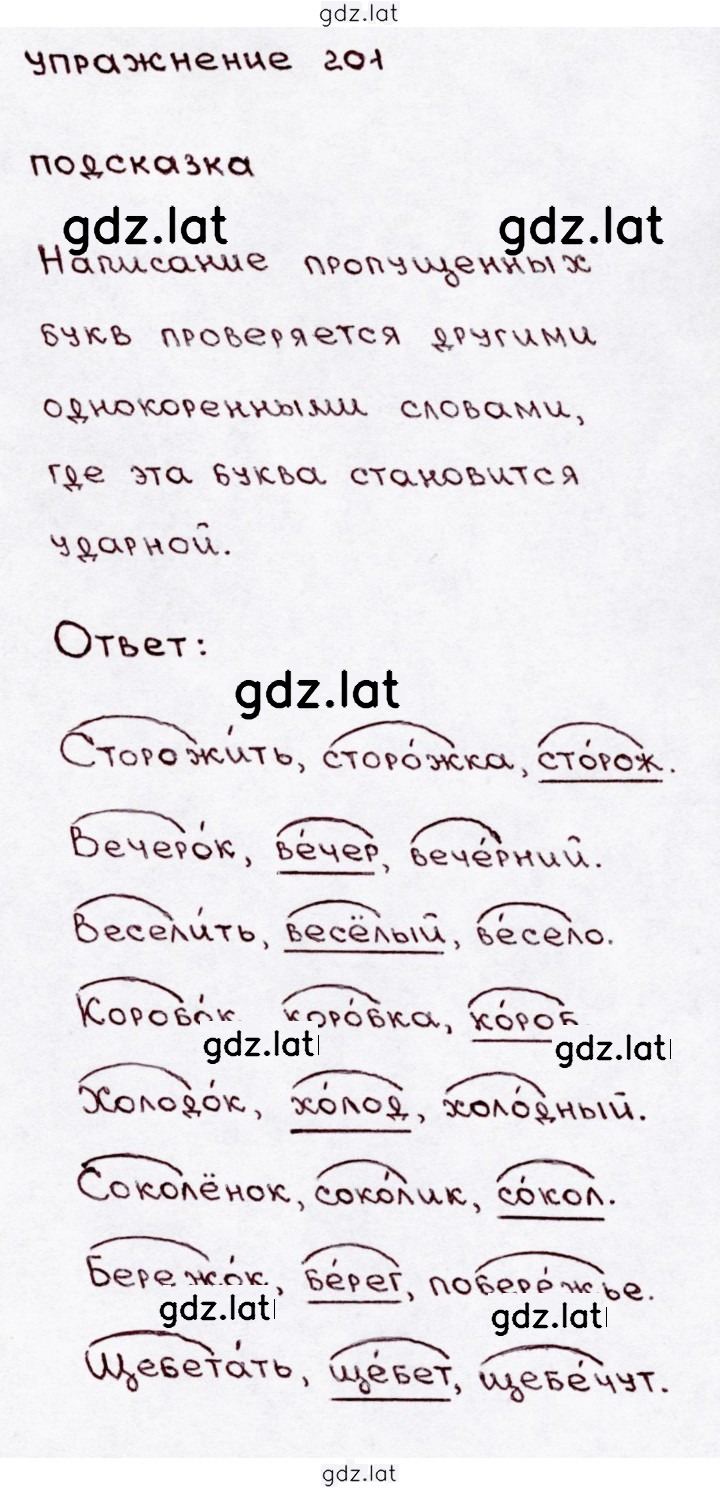 gdz.lat
упражнение 201
подсказка
gdz.lat gdz.lat
Написание пропущенных
букв проверяется другими
однокоренными словами,
где эта буква становится
ударной.
Ответ:
gdz.lat
Сторожи́ть, сторо́жка, сто́рож.
Вечеро́к, ве́чер, вече́рний.
Весели́ть, весёлый, ве́село.
Коробо́к, коро́бка, ко́роб
gdz.lat gdz.lat
Холодо́к, хо́лод, холо́дный.
Соколёнок, соко́лик, со́кол.
Бережо́к, бе́рег, побере́жье.
gdz.lat gdz.lat
Щебета́ть, ще́бет, щебе́чут.
gdz.lat